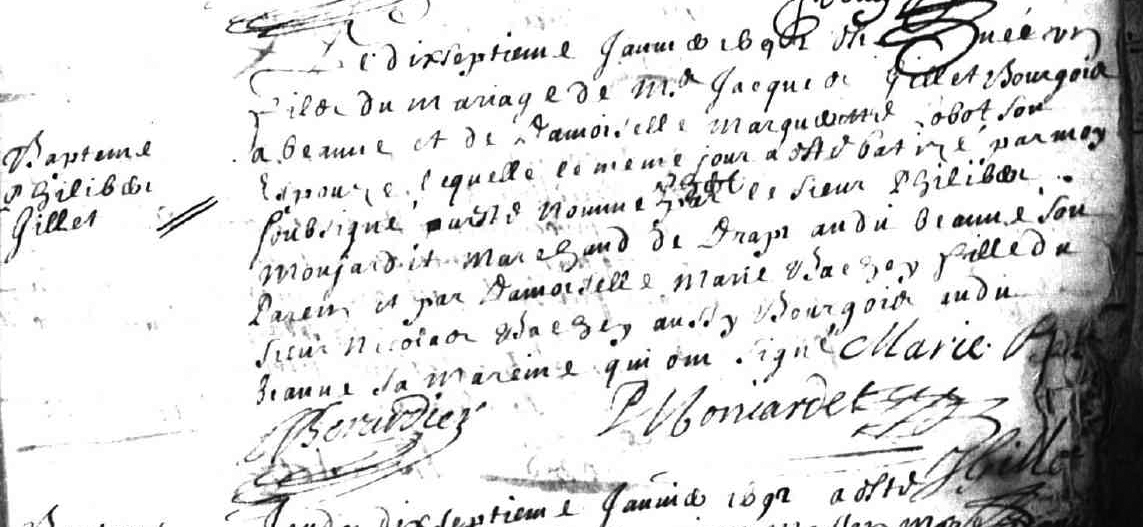 Le dixseptieme Janvier 1692 est née un
fils du mariage de Mr Jacques Gillet Bourgois
a beaune et de Damoiselle Margueritte Lobot son
Espouze, lequelle le meme jour a esté batizé par moy
soubsigné et nommé par le sieur Philiber
Moujardet Marchand de Drap audit beaune son
Parein et par Damoiselle Marie Vachey fille du
sieur Nicolas Vachey aussy Bourgois audit
beaune sa mareine qui ont signé Marie
Bapteme
Philiber
Gillet
P Moniardet
JGillet
dixseptieme Janvier 1692 a esté